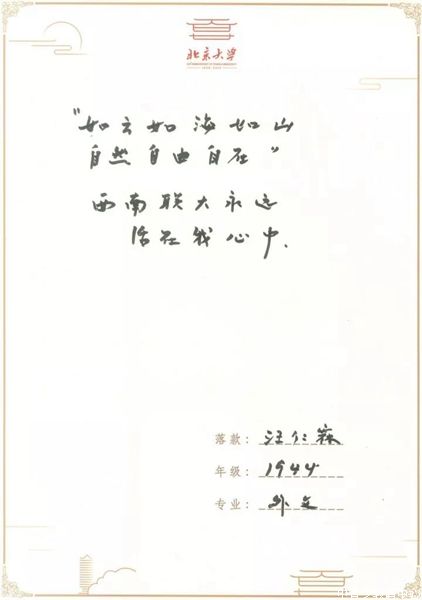 北京大学
"如云如海如山
自然自由自在"
西南联大永远
活在我心中.
落款：汪仁霖
年级：1944
专业：外文